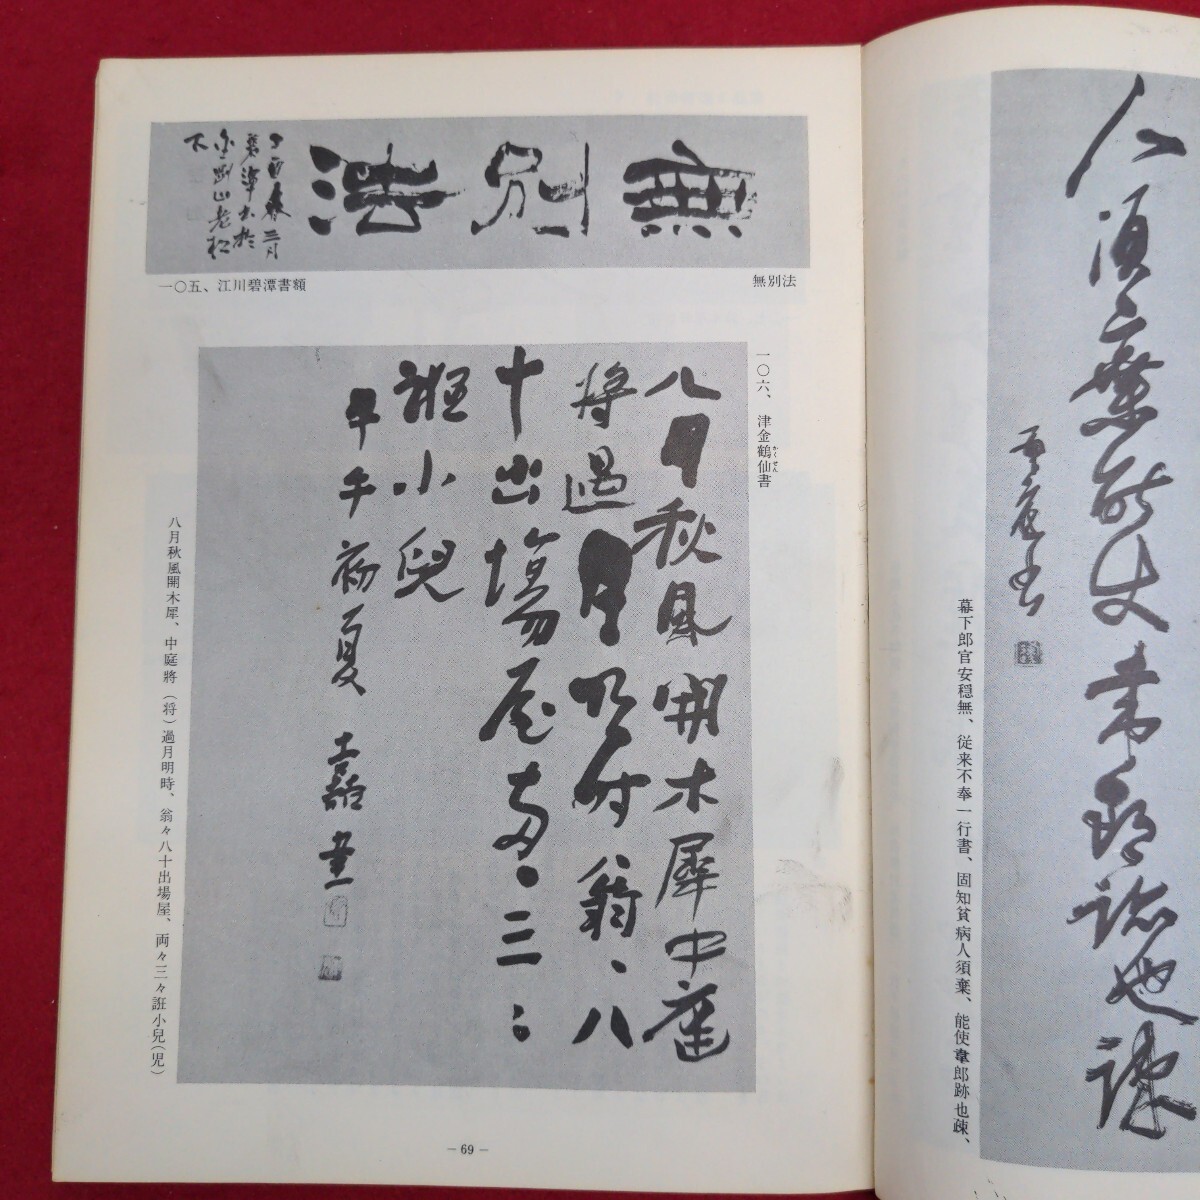 無別法
丁酉春三月
碧潭書於
金剛山老松
下
一〇五、江川碧潭書額
無別法
一〇六、津金鶴仙書
かくせん
八月秋風開木犀中庭
将過月明时翁〻八
十出場屋両〻三〻
誑小兒
壬午初夏
八月秋風開木犀、中庭將（将）過月明時、翁々八十出場屋、両々三々誑小兒（児）
— 69 —
人須棄能使韋郎跡也疎
幕下郎官安穏無、従来不奉一行書、固知貧病人須棄、能使韋郎跡也疎、